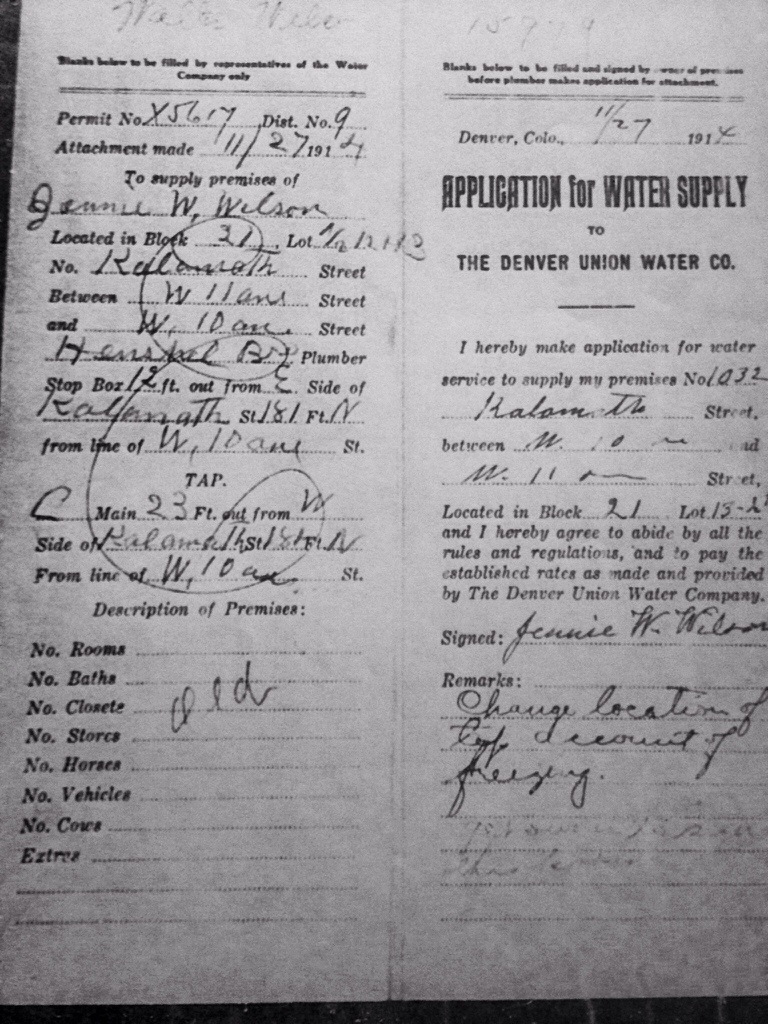 Blanks below to be filled by representatives of the Water
Company only
Permit No. X5617 Dist. No. 9
Attachment made 11/27 1914
To supply premises of
Jennie W. Wilson
Located in Block 21, Lot
No. Kalamath Street
Between W 11 ave Street
and W. 10 ave. Street
Plumber
Stop Box 12 ft. out from E Side of
Kalamath St 181 Ft. N
from line of W. 10 ave St.
TAP.
C Main 23 Ft. out from W
Side of Kalamath St 181 Ft. N
From line of W. 10 ave. St.
Description of Premises:
No. Rooms
No. Baths
No. Closets Old
No. Stores
No. Horses
No. Vehicles
No. Cows
Extras
Blanks below to be filled and signed by owner of premises
before plumber makes application for attachment.
Denver, Colo., 11/27 1914
APPLICATION for WATER SUPPLY
TO
THE DENVER UNION WATER CO.
I hereby make application for water
service to supply my premises No 1032
Kalamath Street,
between W. 10 and
W. 11 Street,
Located in Block 21 Lot
and I hereby agree to abide by all the
rules and regulations, and to pay the
established rates as made and provided
by The Denver Union Water Company.
Signed: Jennie W. Wilson
Remarks:
Change location of
tap account of
freezing.